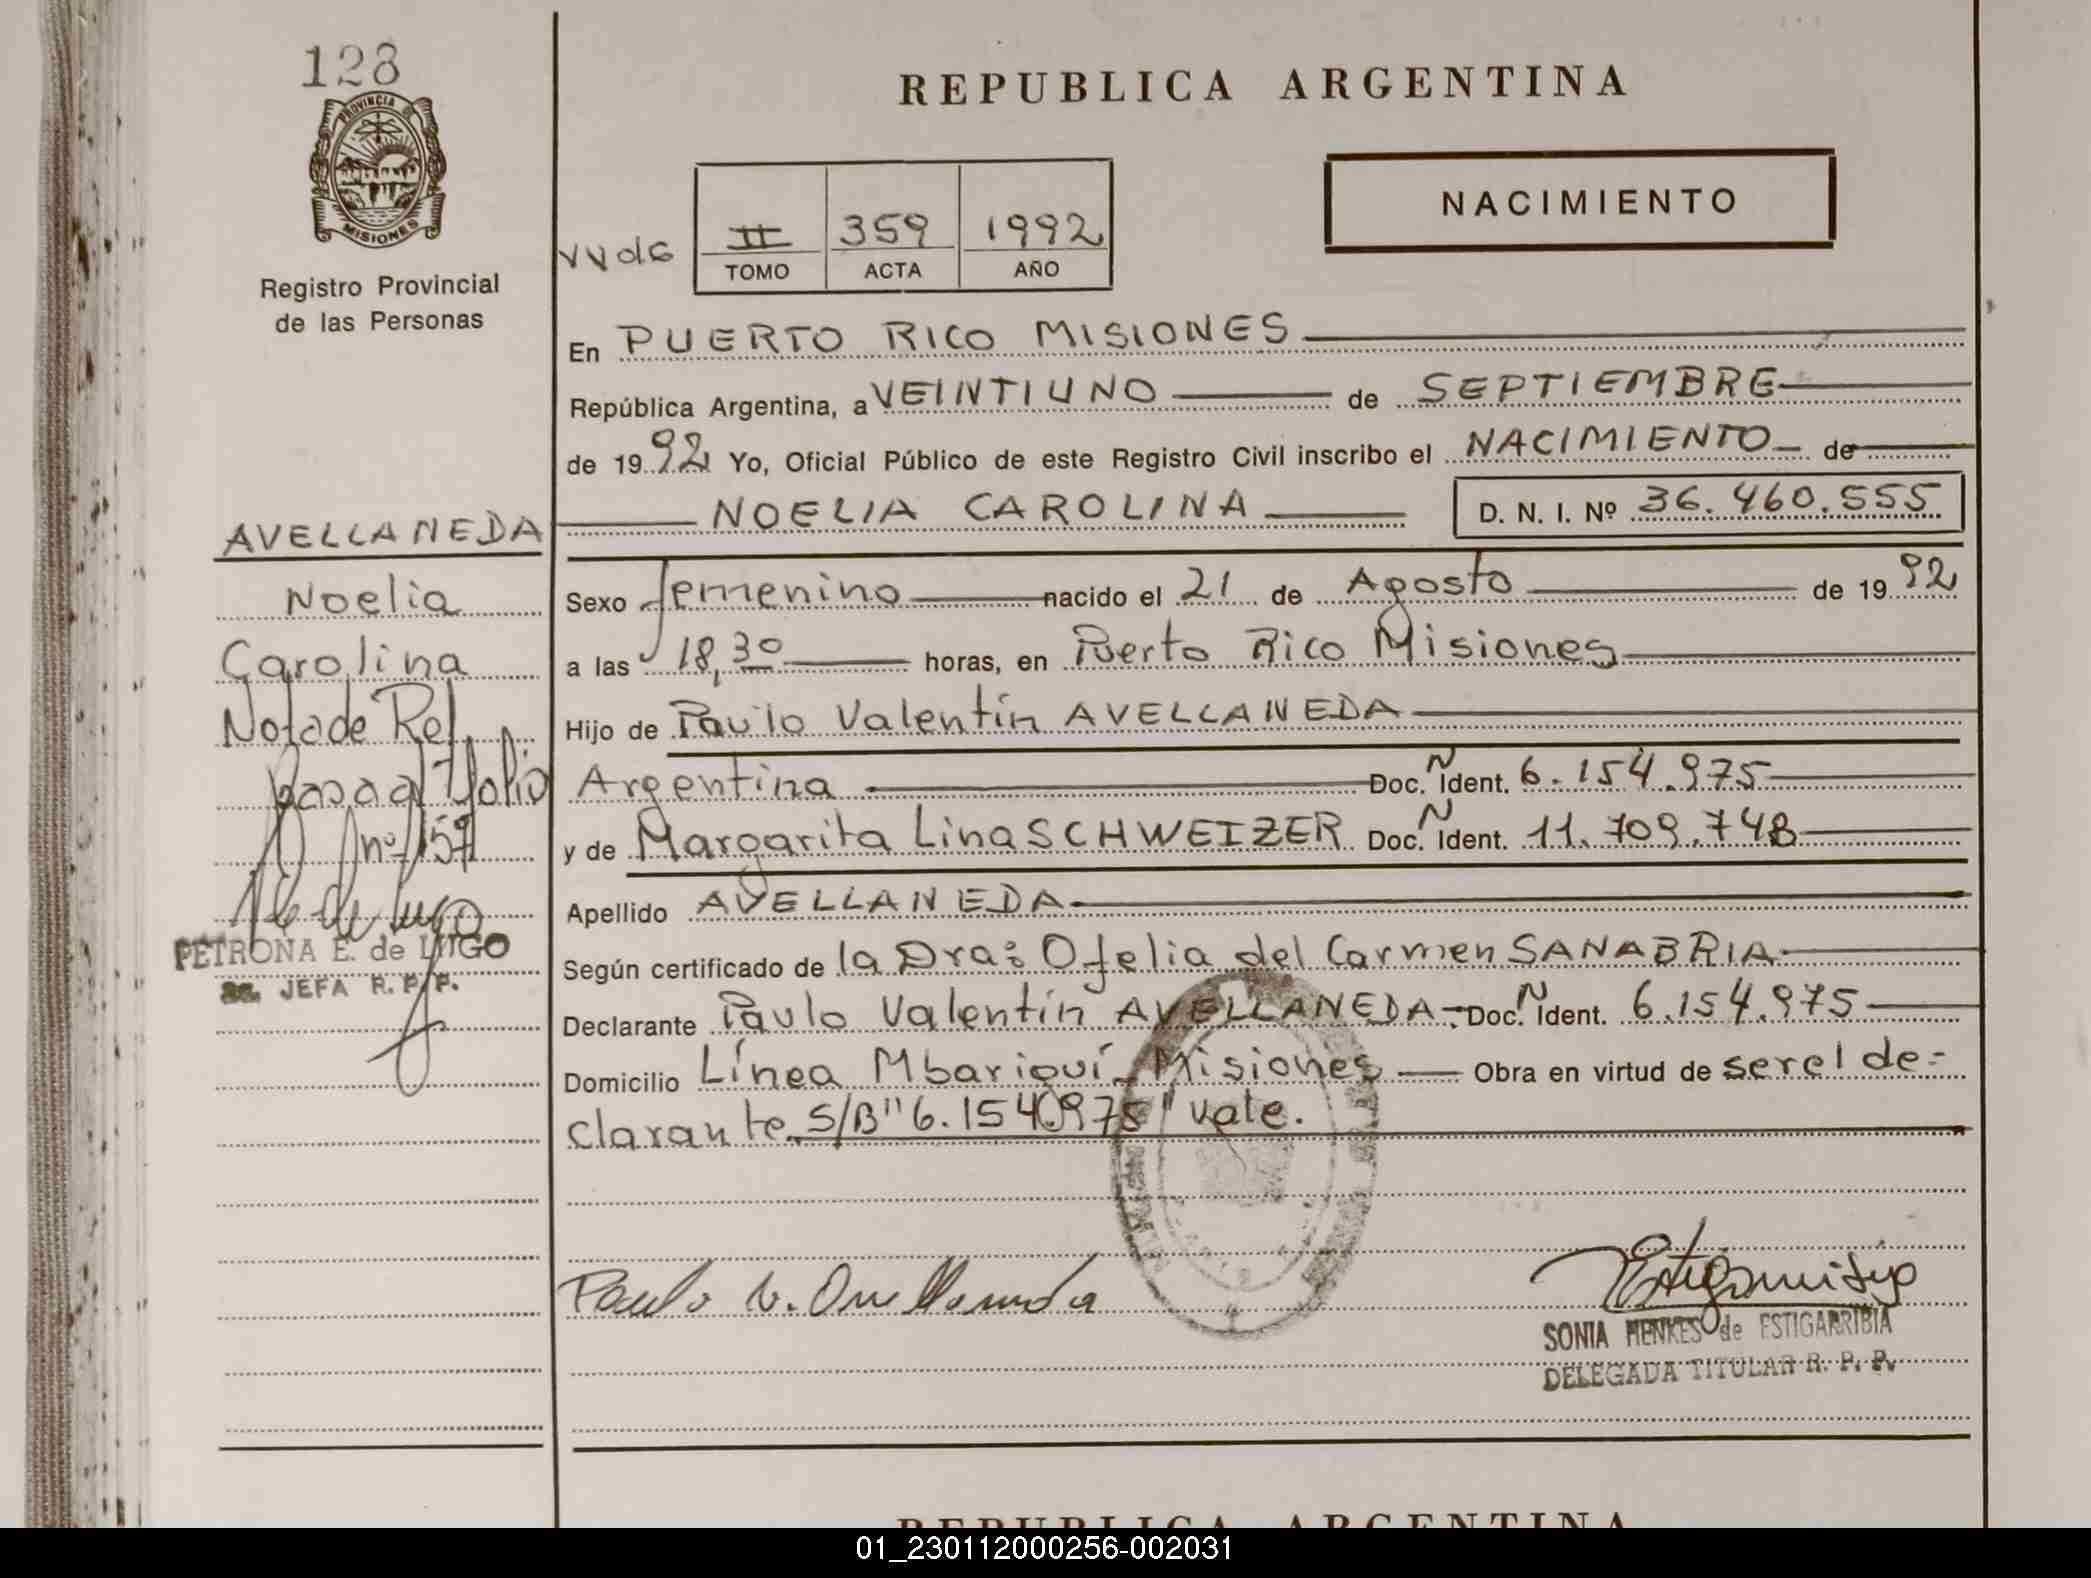 128
REPUBLICA ARGENTINA
PROVINCIA DE
MISIONES
Registro Provincial
de las Personas
II 359 1992
TOMO ACTA AÑO
NACIMIENTO
En PUERTO RICO MISIONES
República Argentina, a VEINTIUNO de SEPTIEMBRE
de 1992 Yo, Oficial Público de este Registro Civil inscribo el NACIMIENTO de
NOELIA CAROLINA D. N. I. Nº 36.460.555
AVELLANEDA
Noelia
Carolina
Nota de Ref.
nº 159
PETRONA E. de LUGO
JEFA R. P. P.
Sexo femenino nacido el 21 de Agosto de 1992
a las 18,30 horas, en Puerto Rico Misiones
Hijo de Paulo Valentín AVELLANEDA
Argentina Doc. N Ident. 6.154.975
y de Margarita Lina SCHWEIZER Doc. N Ident. 11.709.748
Apellido AVELLANEDA
Según certificado de la Dra: Ofelia del Carmen SANABRIA
Declarante Paulo Valentín AVELLANEDA Doc. N Ident. 6.154.975
Domicilio Línea Mbariguí Misiones Obra en virtud de ser el de-
clarante S/B "6.154.975" vale.
Paulo V. Avellaneda
SONIA HENKES de ESTIGARRIBIA
DELEGADA TITULAR R. P. P.
REPUBLICA ARGENTINA
01_230112000256-002031